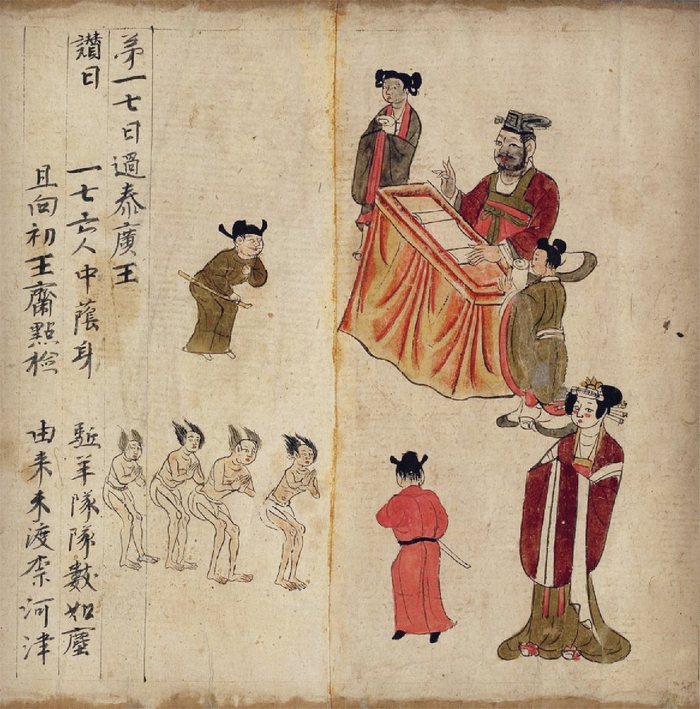 苐一七日過泰廣王
讚曰 一七亡人中蔭身 駈羊隊隊數如塵
且向初王齋點檢 由来未渡柰河津